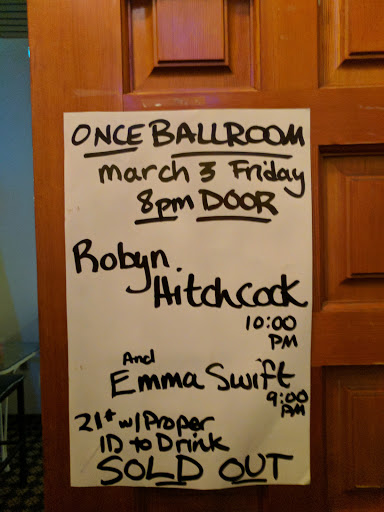 ONCE BALLROOM
march 3 Friday
8pm DOOR
Robyn
Hitchcock
10:00
PM
And
Emma Swift
9:00
PM
21+ w/Proper
ID to Drink
SOLD OUT